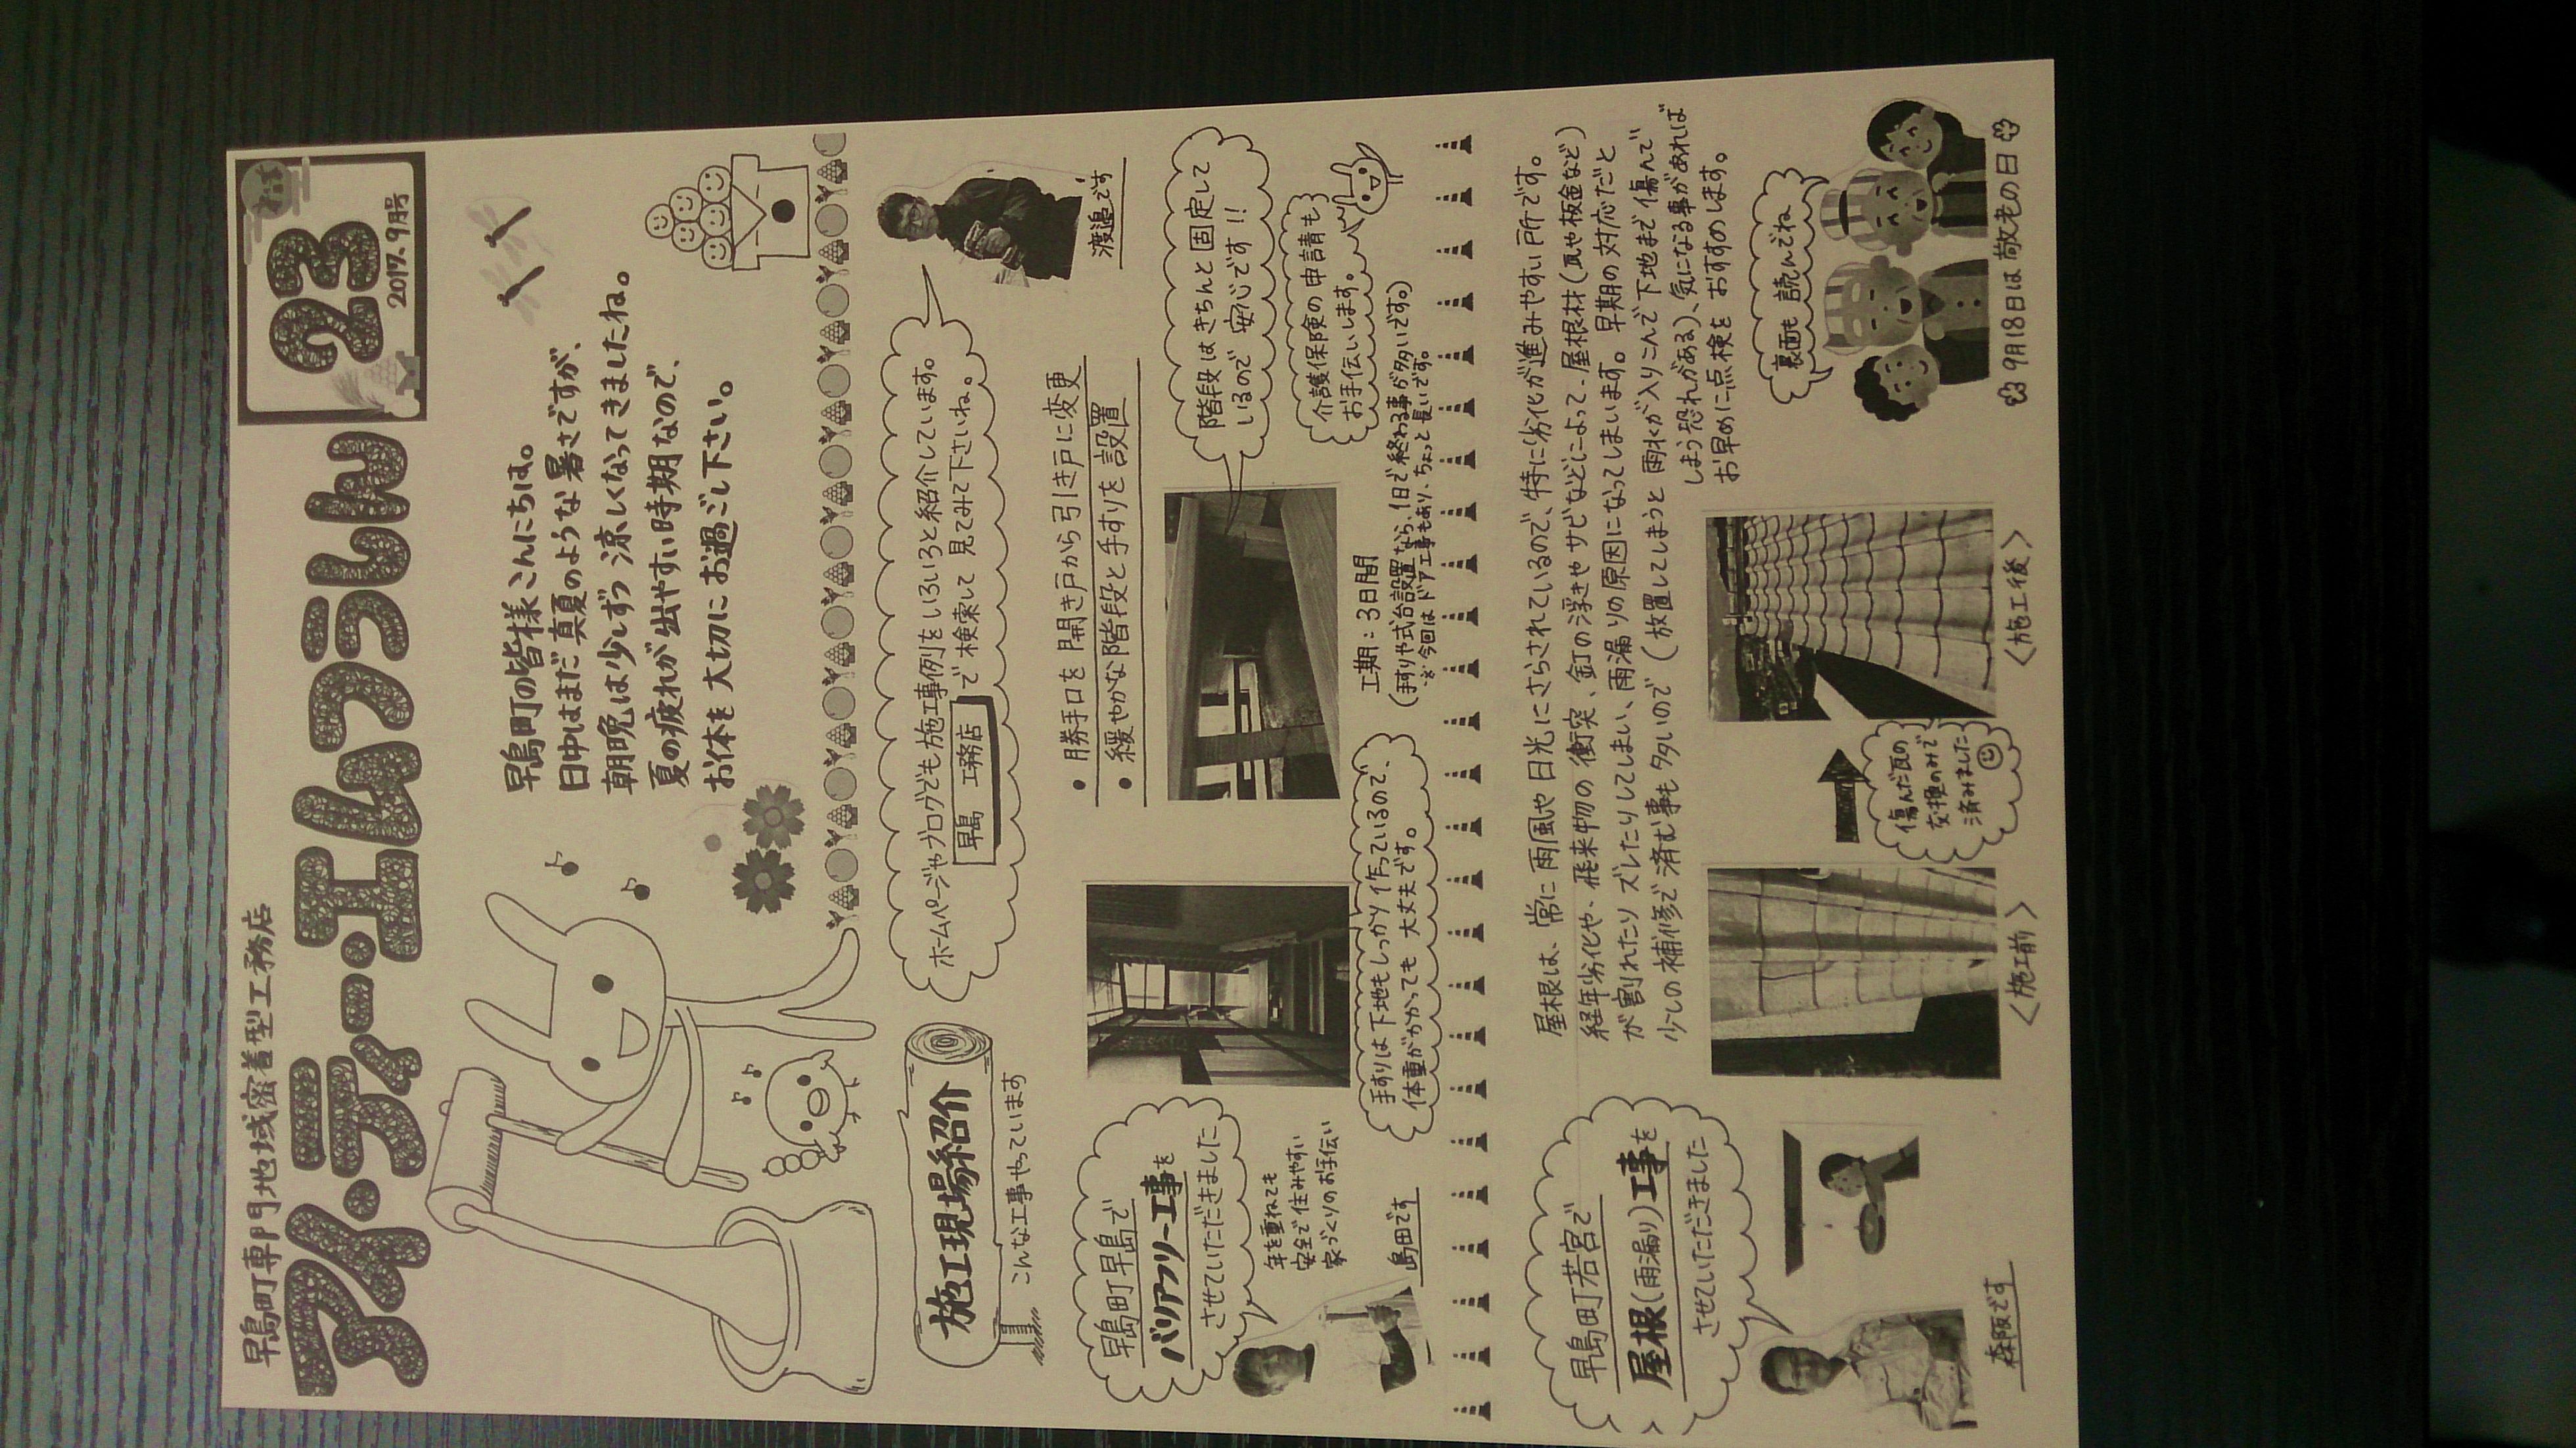 早島町専門地域密着型工務店
アイ・ディー・エムつうしん
23
2017.9月号
早島町の皆様こんにちは。
日中はまだ真夏のような暑さですが、
朝晩は少しずつ涼しくなってきましたね。
夏の疲れが出やすい時期なので、
お体を大切にお過ごし下さい。
施工現場紹介
こんな工事やっています
ホームページやブログでも施工事例をいろいろと紹介しています。
早島 工務店 で検索して見てみて下さいね。
渡邉です
早島町早島で
バリアフリー工事を
させていただきました
年を重ねても
安全で住みやすい
家づくりのお手伝い
島田です
・勝手口を開き戸から引き戸に変更
・緩やかな階段と手すりを設置
階段はきちんと固定して
いるので安心です!!
介護保険の申請も
お手伝いします。
手すりは下地もしっかり作っているので、
体重がかかっても大丈夫です。
工期:3日間
(手すりや式台設置なら、1日で終わる事が多いです。)
※今回はドア工事もあり、ちょっと長いです。
早島町若宮で
屋根(雨漏り)工事を
させていただきました
森阪です
屋根は、常に雨風や日光にさらされているので、特に劣化が進みやすい所です。
経年劣化や、飛来物の衝突、釘の浮きやサビなどによって、屋根材(瓦や板金など)
が割れたりズレたりしてしまい、雨漏りの原因になってしまいます。早期の対応だと
少しの補修で済む事も多いので(放置してしまうと雨水が入りこんで下地まで傷んで
しまう恐れがある)、気になる事があれば
お早めに点検をおすすめします。
<施工前>
傷んだ瓦の
交換のみで
済みました
<施工後>
裏面も読んでね
9月18日は敬老の日